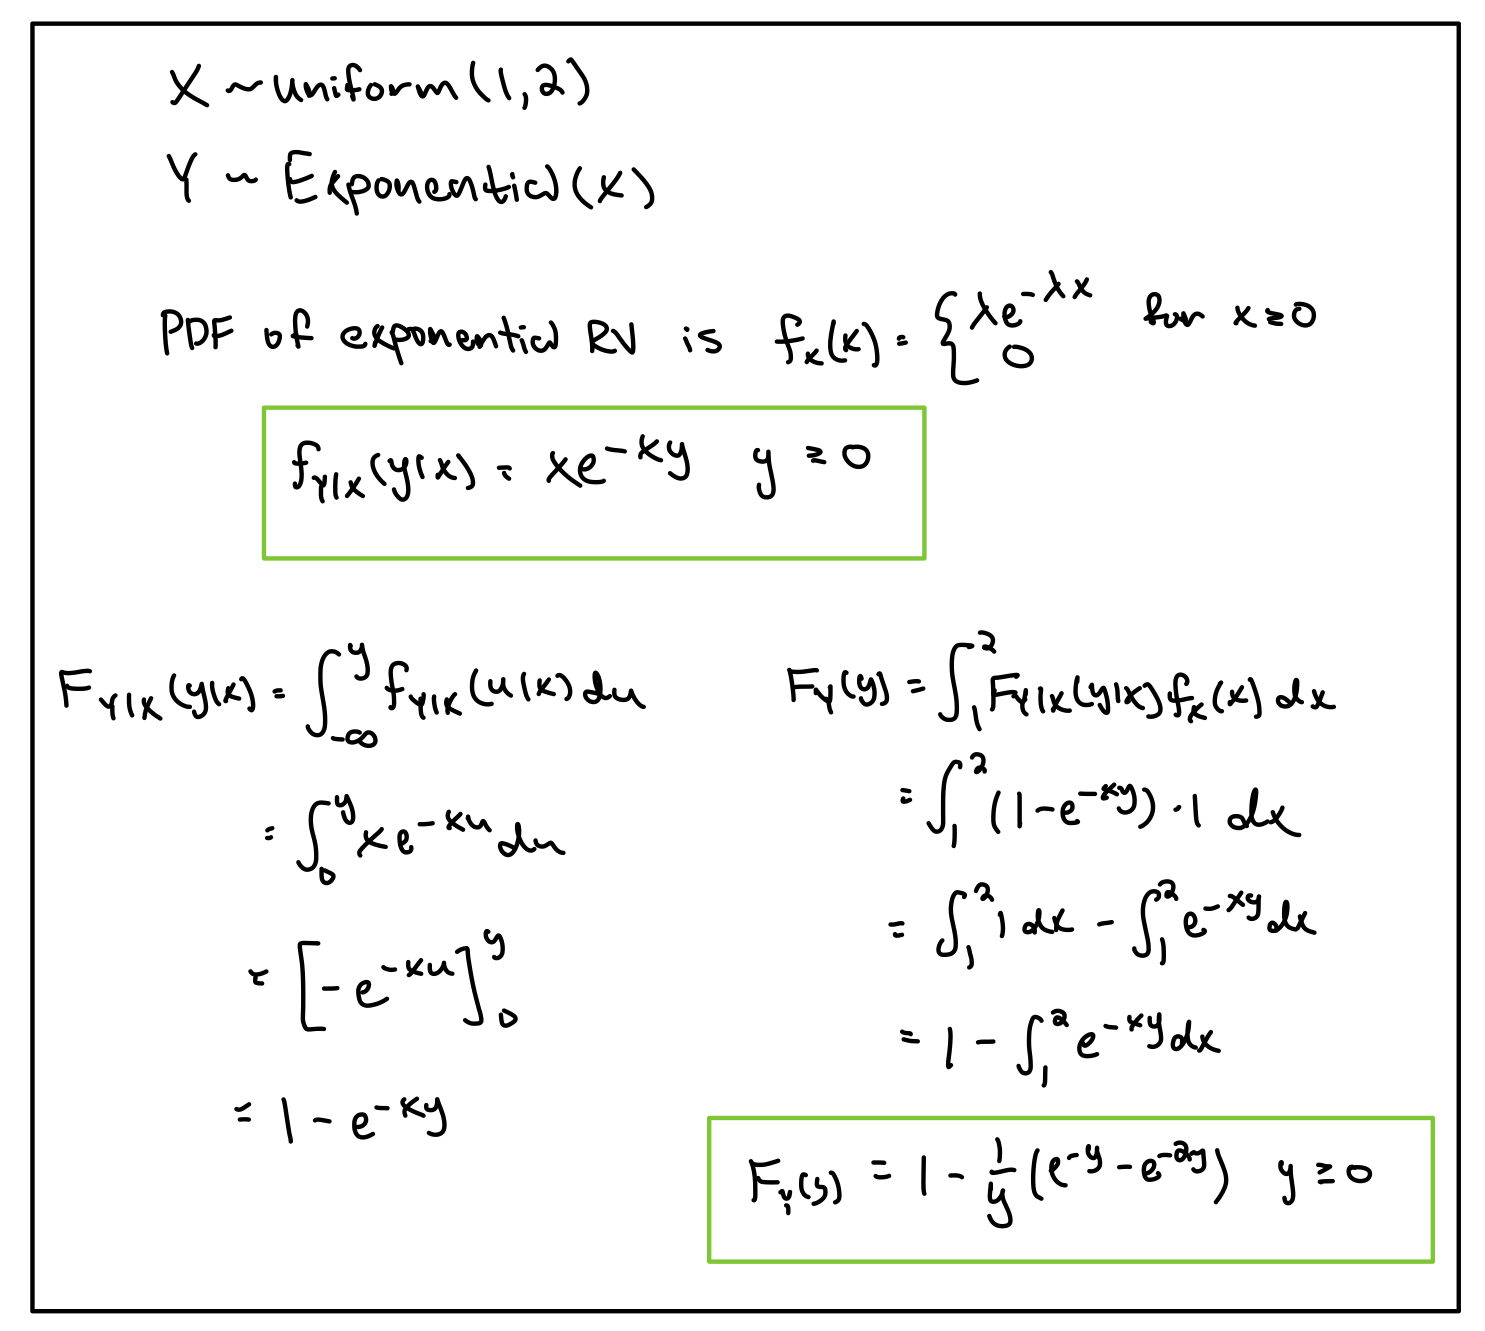 X ~ uniform(1,2)
Y ~ Exponential(x)
PDF of exponential RV is f_x(x) = { λe^{-λx} for x ≥ 0
0
f_{Y|X}(y|x) = xe^{-xy} y ≥ 0
F_{Y|X}(y|x) = ∫_{-∞}^{y} f_{Y|X}(u|x) du
= ∫_0^y xe^{-xu} du
= [-e^{-xu}]_0^y
= 1 - e^{-xy}
F_Y(y) = ∫_1^2 F_{Y|X}(y|x) f_x(x) dx
= ∫_1^2 (1-e^{-xy}) · 1 dx
= ∫_1^2 1 dx - ∫_1^2 e^{-xy} dx
= 1 - ∫_1^2 e^{-xy} dx
F_Y(y) = 1 - \frac{1}{y}(e^{-y} - e^{-2y}) y ≥ 0